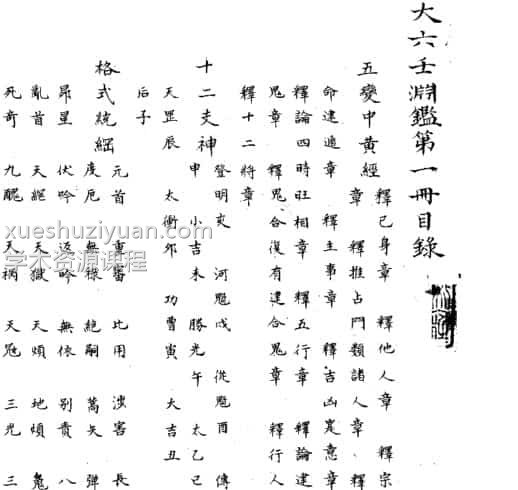 大六壬淵鑑第一冊目錄
五變中黃經
釋己身章 釋他人章 釋宗
章 釋推占門類諸人章 釋
命建遁章 釋主事章 釋吉凶定意章
釋論四時旺相章 釋五行章 釋論建
鬼章 釋鬼合復有建合鬼章 釋行人
釋十二將章
十二支神
登明亥 河魁戌 從魁酉 傳
申 小吉未 勝光午 太乙巳
天罡辰 太衝卯 功曹寅 大吉丑
后子
格式統綱
元首 重審 比用 涉害 長
度厄 無祿 絕嗣 蒿矢 彈
昴星 伏吟 返吟 無依 別責 八
亂首 天網 天獄 天煩 地煩 鬼
死奇 九醜 天禍 天寇 三光 三
xueshuziyuan.com
学术资源课程